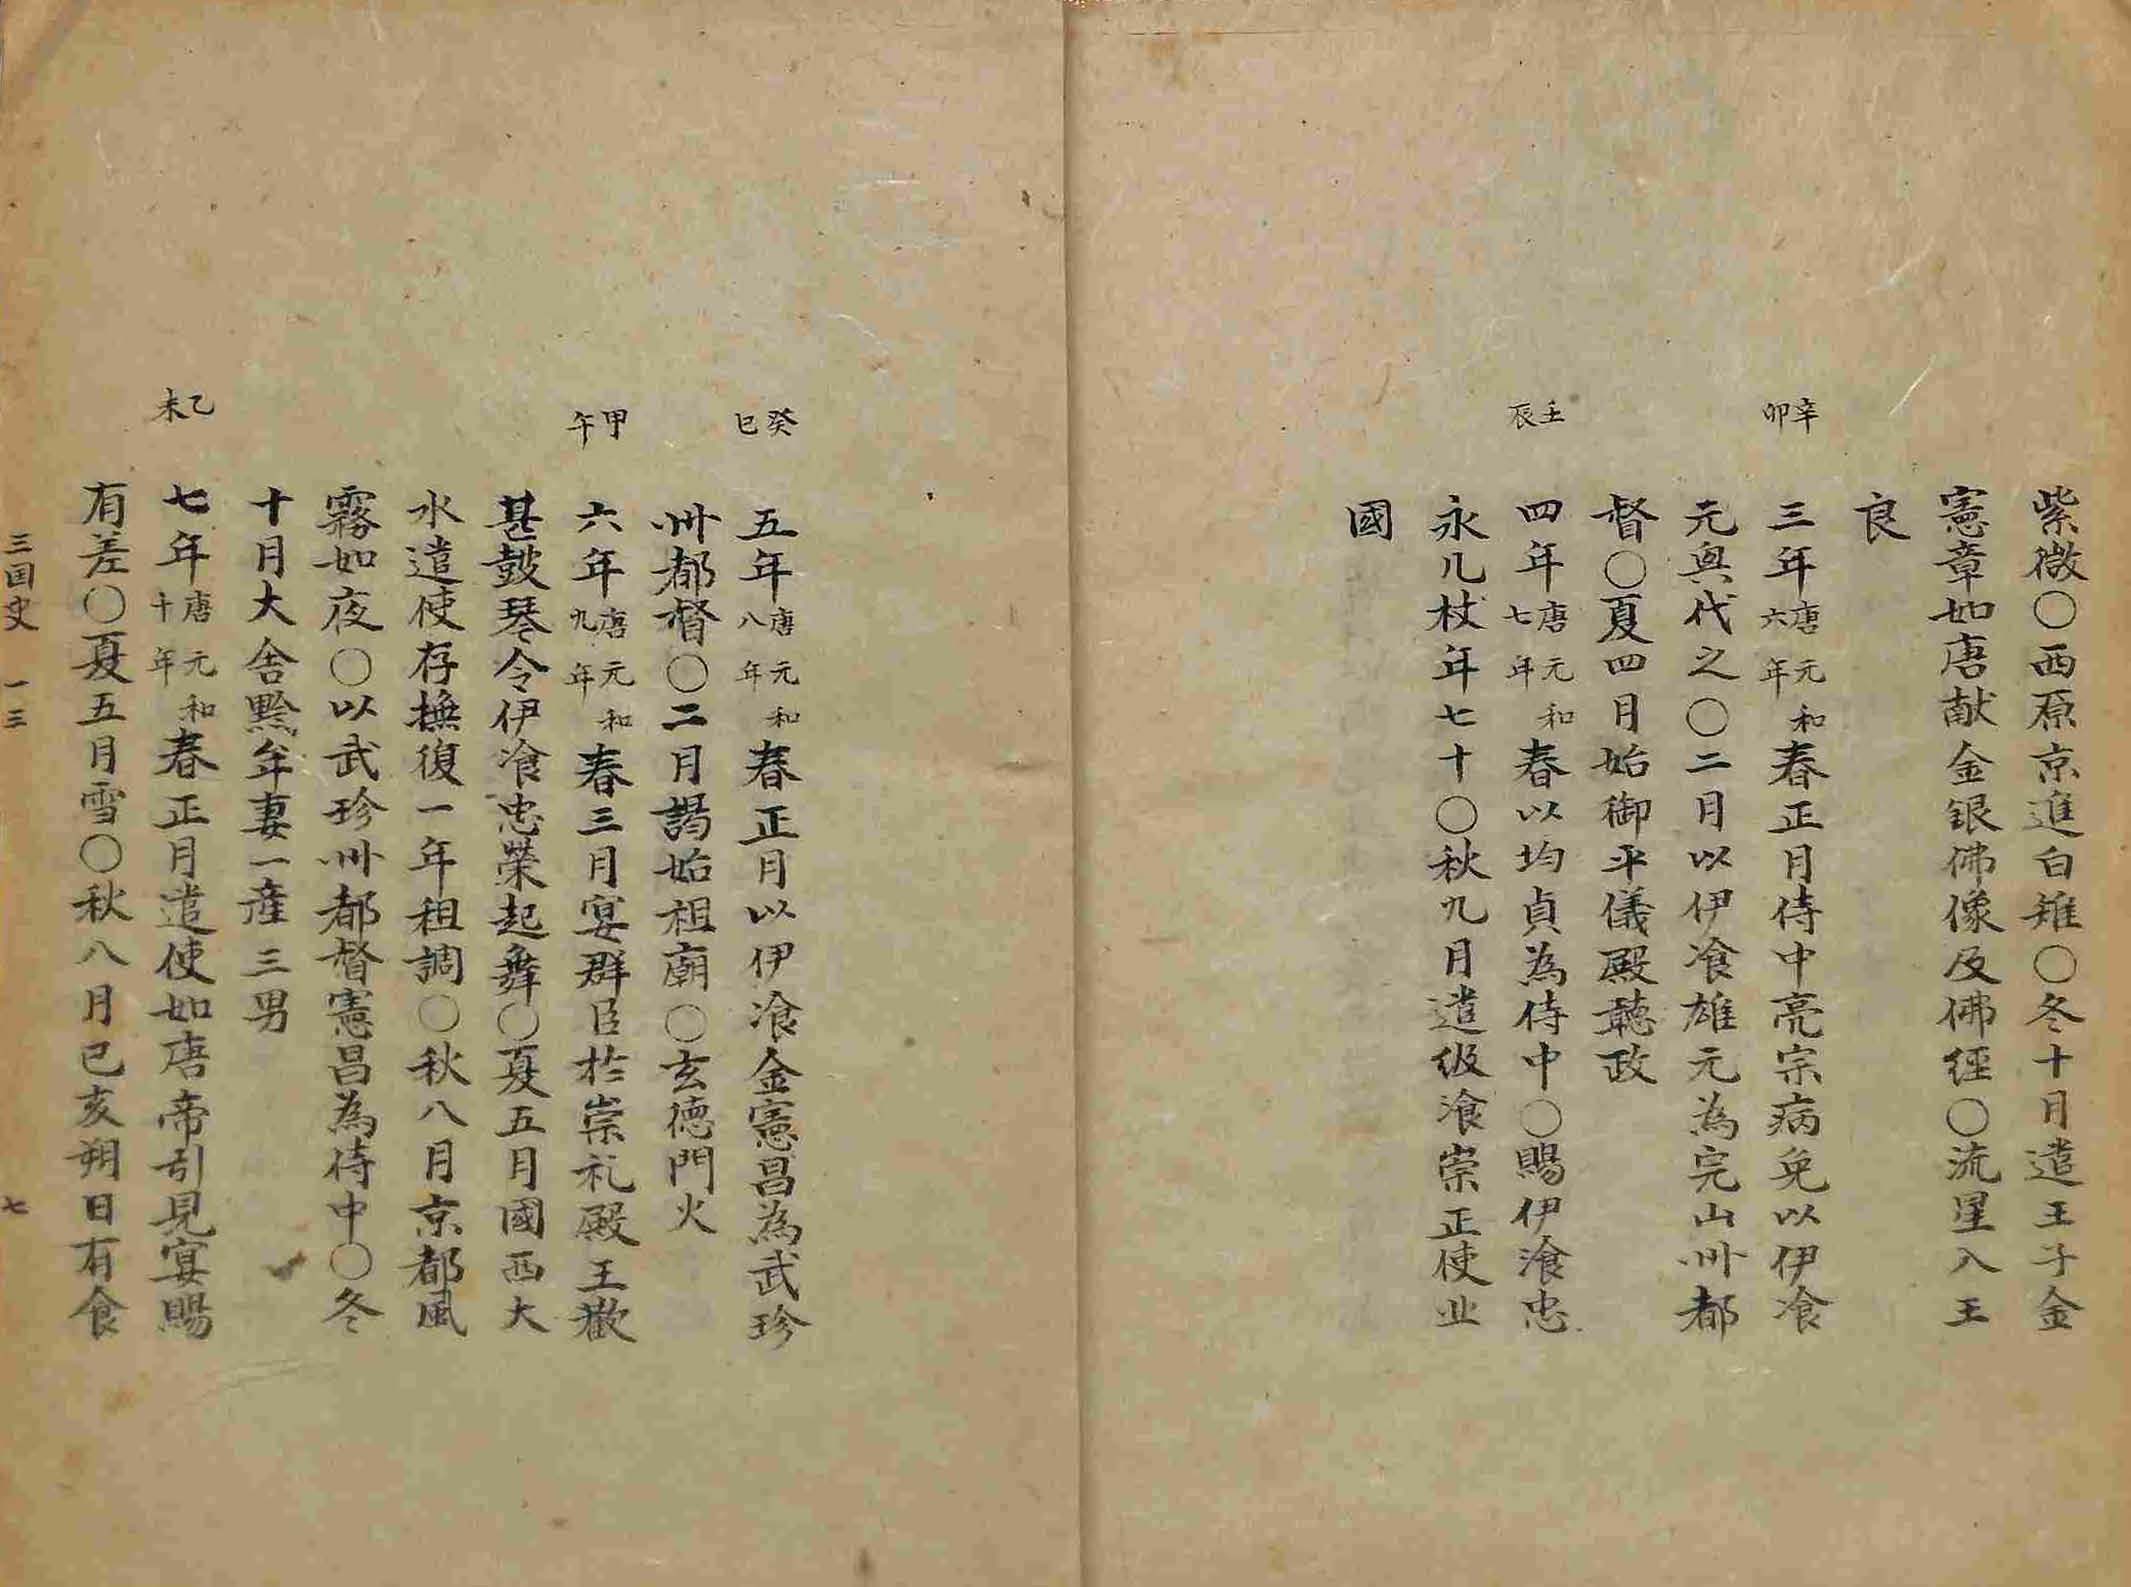 紫微〇西原京進白雉〇冬十月遣王子金
憲章如唐献金銀佛像及佛經〇流星入王
良
辛卯
三年唐元和六年春正月侍中亮宗病免以伊飡
元興代之〇二月以伊飡雄元為完山州都
督〇夏四月始御平儀殿聽政
壬辰
四年唐元和七年春以均貞為侍中〇賜伊飡忠
永几杖年七十〇秋九月遣级飡崇正使北
國
癸巳
五年唐元和八年春正月以伊飡金憲昌為武珍
州都督〇二月謁始祖廟〇玄德門火
甲午
六年唐元和九年春三月宴群臣於崇礼殿王歡
甚鼓琴令伊飡忠榮起舞〇夏五月國西大
水遣使存撫復一年租調〇秋八月京都風
霧如夜〇以武珍州都督憲昌為侍中〇冬
十月大舍黔牟妻一産三男
乙未
七年唐元和十年春正月遣使如唐帝引見宴賜
有差〇夏五月雪〇秋八月己亥朔日有食
三国史 一三 七